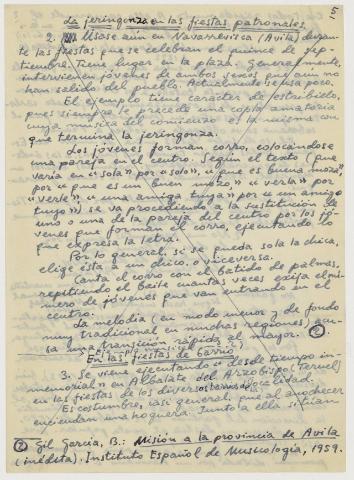 5
La jeringonza en las fiestas patronales
2. Úsase aún en Navarrevisca (Avila) duran-
te las fiestas que se celebran el quince de sep-
tiembre. Tiene lugar en la plaza. Generalmente,
intervienen jóvenes de ambos sexos que aun no
han salido del pueblo. Actualmente se usa poco.
El ejemplo tiene carácter de estribillo
pues siempre le precede una copla amatoria
cuya música del comienzo es la misma con
que termina la jeringonza.
Los jóvenes forman corro, colocándose
una pareja en el centro. Según el texto (que
varía en "sola" por "solo", "que es buena moza",
por "que es un buen mozo", "verla" por
"verle", "una amiga tuya" por "un amigo
tuyo") se va procediendo a la sustitución de
uno o una de la pareja del centro por los jó-
venes que forman el corro, ejecutando lo
que expresa la letra.
Por lo general, si se queda sola la chica,
elige ésta a un chico, o viceversa.
Canta el corro con el batido de palmas,
repitiendo el baile cuantas veces exija el nú-
mero de jóvenes que van entrando en el
centro.
La melodía (en modo menor y de fondo
muy tradicional en muchas regiones) acu-
sa una transición rápida al mayor. (2)
(Ejemplo 2)
En las fiestas de barrio
3. Se viene ejecutando "desde tiempo in-
memorial" en Albalate del Arzobispo (Teruel)
en las fiestas de los diversos de la localidad.
Es costumbre, casi general, que al anochecer
enciendan una hoguera. Junto a ella se
(2) Gil García, B.: Misión a la provincia de Avila
(inédita). Instituto Español de Musicología, 1959.